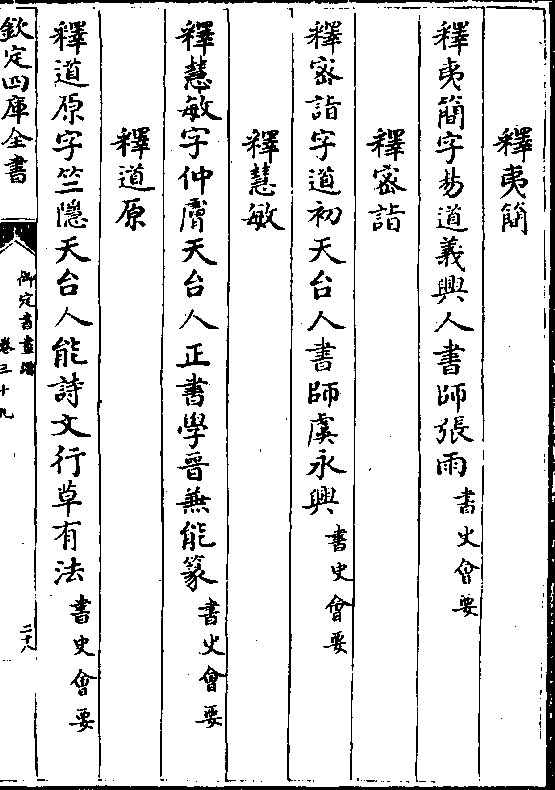 釋夷簡
釋夷簡字易道義興人書師張雨書史會要
釋宻詣
釋宻詣字道初天台人書師虞永興書史會要
釋慧敏
釋慧敏字仲膚天台人正書學晉兼能篆書史會要
釋道原
釋道原字竺隱天台人能詩文行草有法書史會要
欽定四庫全書
御定書畫譜
卷三十九
二十八